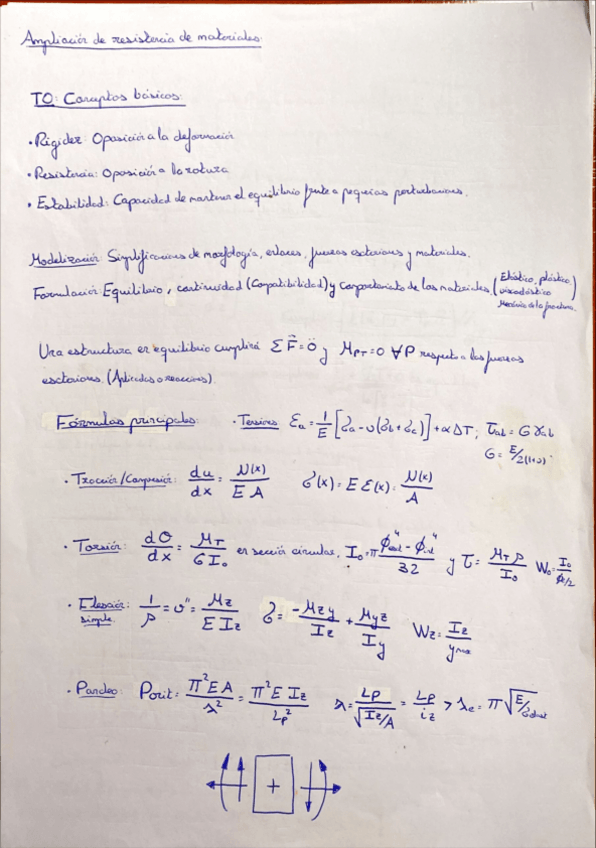 Ampliación de resistencia de materiales:
T0: Conceptos básicos:
• Rigidez: Oposición a la deformación
• Resistencia: Oposición a la rotura
• Estabilidad: Capacidad de mantener el equilibrio frente a pequeñas perturbaciones.
Modelización: Simplificaciones de morfología, enlaces, fuerzas exteriores y materiales.
Formulación: Equilibrio, continuidad (Compatibilidad) y comportamiento de los materiales (Elástico, plástico, viscoelástico
Mecánica de la fractura)
Una estructura en equilibrio cumplirá Σ F⃗ = 0⃗ y M_PT = 0 ∀P respecto a las fuerzas
exteriores. (Aplicadas o reacciones).
Fórmulas principales: • Tensiones ε_a = 1/E [σ_a - υ(σ_b + σ_c)] + α ΔT; τ_ab = G γ_ab
G = E/2(1+υ)
• Tracción/Compresión: du/dx = N(x)/EA σ(x) = E ε(x) = N(x)/A
• Torsión: dθ/dx = M_T/GI_0 en sección circular, I_0 = π (ϕ_ext⁴ - ϕ_int⁴)/32 y τ = M_T ρ/I_0 W_0 = I_0/(ϕ/2)
• Flexión simple: 1/ρ = υ'' = M_z/EI_z σ = -M_z y/I_z + M_y z/I_y W_z = I_z/y_max
• Pandeo: P_crit = π² E A/λ² = π² E I_z/L_p² λ = L_p/√(I_z/A) = L_p/i_z > λ_e = π √(E/σ)
+